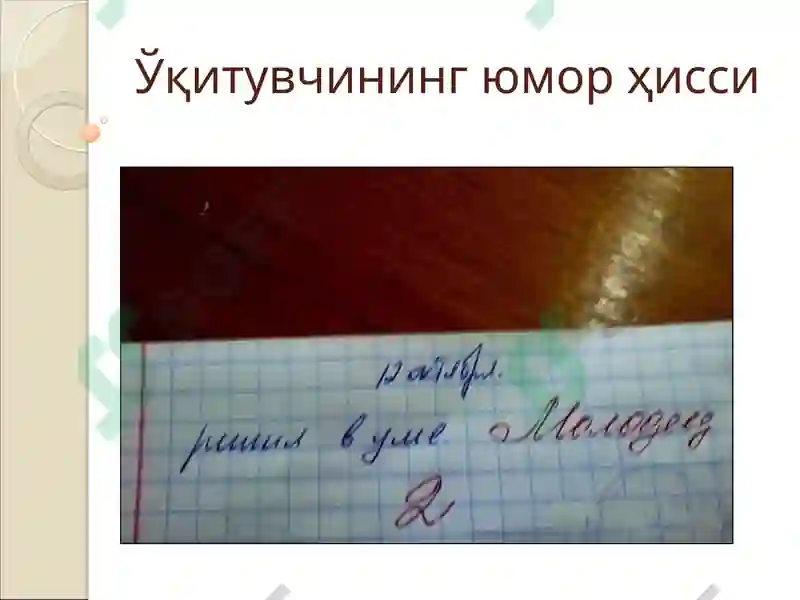 Ўқитувчининг юмор ҳисси
12 октября.
ришил в уме. Молодец
2